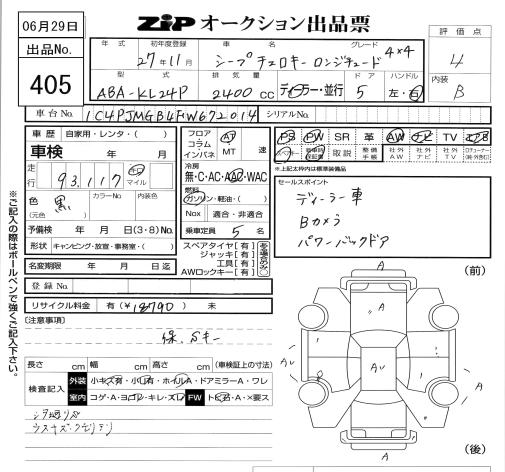 06月29日
出品No.
405
ZIP オークション出品票
評価点
4
内装
B
年式 初年度登録 車名 グレード
27年11月 シープチェロキーロンジチュード 4×4
型式 排気量 ドア ハンドル
ABA-KL24P 2400 CC ディーラー・並行 5 左・右
車台No. 1C4PJMGB4FW672014 シリアルNo.
車歴 自家用・レンタ( )
車検 年 月
走行 93,117 キロ マイル
色(元色) 黒 カラーNo. 内装色
予備検 年 月 日(3・8)No.
形状 キャンピング・放宣・事務室・( )
名変期限 年 月 日迄
登録No.
リサイクル料金 有(¥18790) 未
フロア コラム インパネ AT MT 速
冷房
無・C・AC・AAC・WAC
燃料
ガソリン・軽油・( )
Nox 適合・非適合
乗車定員 5 名
スペアタイヤ[有]
ジャッキ[有]
工具[有]
AWロックキー[有]
PS PW SR 革 AW ナビ TV エアB
取説 整備手帳 社外AW 社外ナビ 社外TV
※上記太枠内は標準装備品
セールスポイント
ディーラー車
Bカメラ
パワーバックドア
[注意事項]
保、Sキー
長さ cm 幅 cm 高さ cm (車検証上の寸法)
検査記入 外装 小キズ有・小凹有・ホイルA・ドアミラーA・ワレ
室内 コゲ・A・ヨゴレ・キレ・スレ FW トビA・A・×要ス
(前)
A
A
A
A
(後)
※ご記入の際はボールペンで強くご記入下さい。